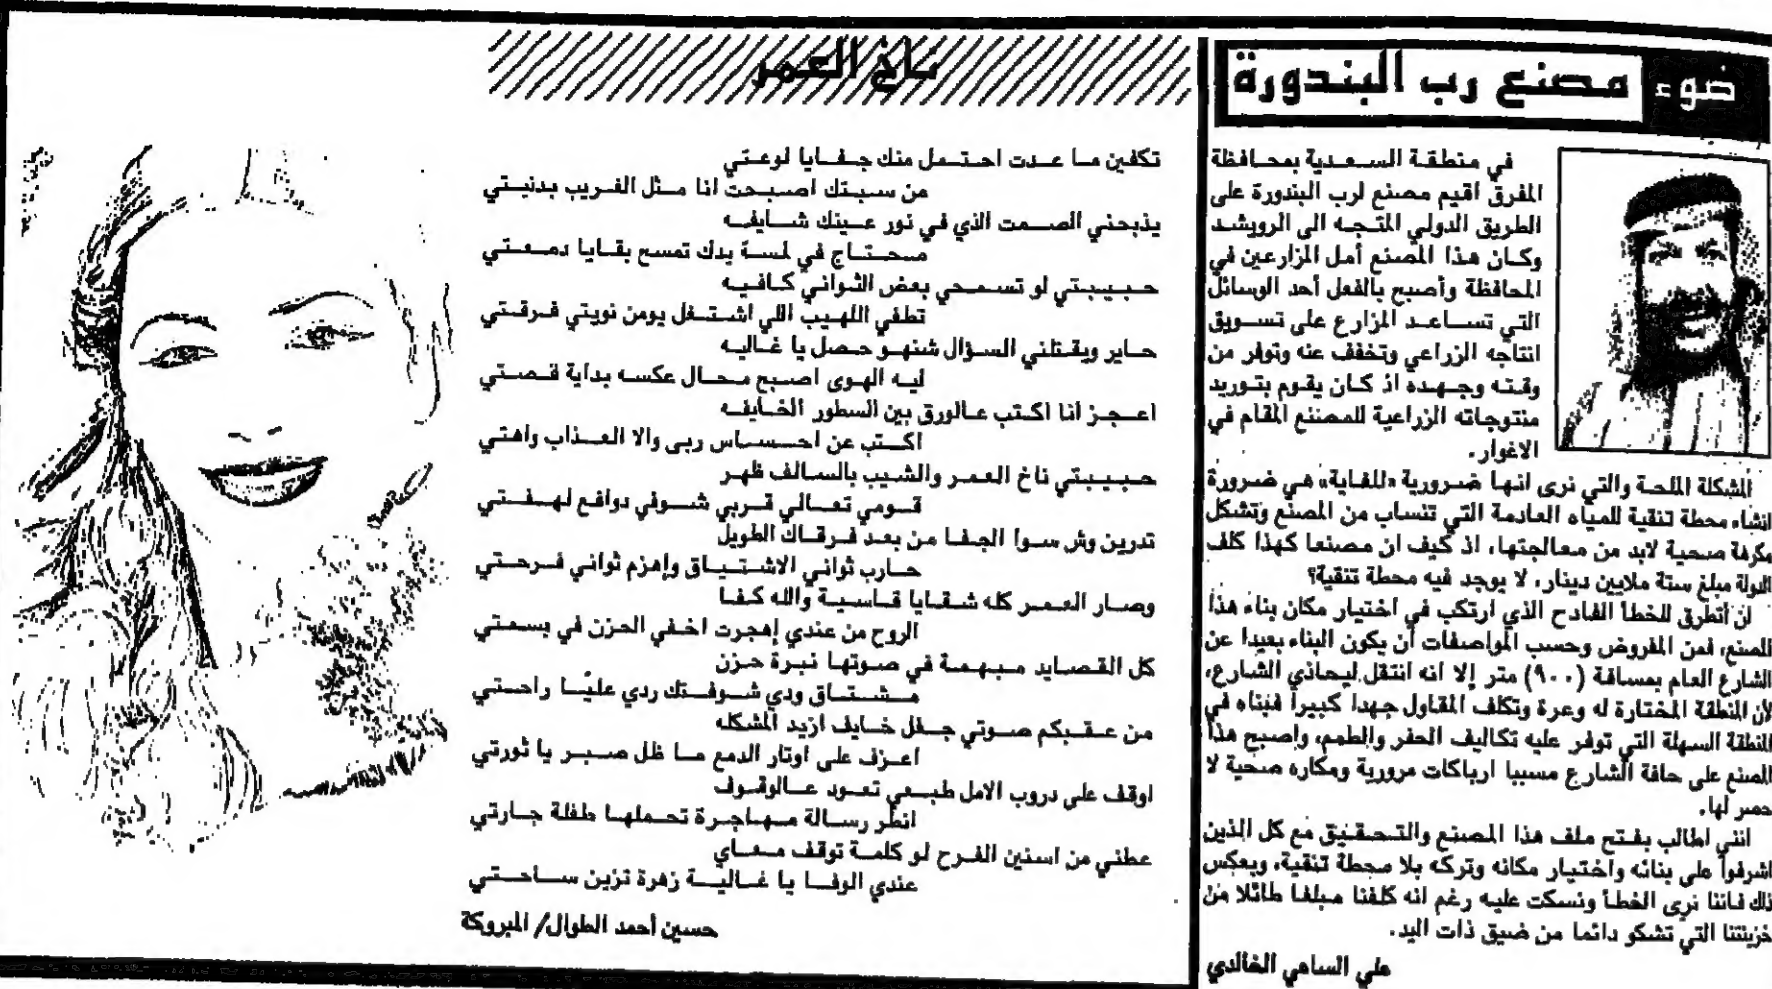 ضوء مصنع رب البندورة
في منطقة السعدية بمحافظة
المفرق اقيم مصنع لرب البندورة على
الطريق الدولي المتجه الى الرويشد
وكان هذا المصنع أمل المزارعين في
المحافظة وأصبح بالفعل أحد الوسائل
التي تساعد المزارع على تسويق
انتاجه الزراعي وتخفف عنه وتوفر من
وقته وجهده اذ كان يقوم بتوريد
منتوجاته الزراعية للمصنع المقام في
الاغوار.
المشكلة الملحة والتي نرى انها ضرورية «للغاية» هي ضرورة
انشاء محطة تنقية للمياه العادمة التي تنساب من المصنع وتشكل
مكرهة صحية لابد من معالجتها، اذ كيف ان مصنعا كهذا كلف
الدولة مبلغ ستة ملايين دينار، لا يوجد فيه محطة تنقية؟
لن أتطرق للخطأ الفادح الذي ارتكب في اختيار مكان بناء هذا
المصنع، فمن المفروض وحسب المواصفات أن يكون البناء بعيدا عن
الشارع العام بمسافة (٩٠٠) متر إلا انه انتقل ليحاذي الشارع،
لأن المنطقة المختارة له وعرة وتكلف المقاول جهدا كبيرا فبناه في
المنطقة السهلة التي توفر عليه تكاليف الحفر والطمم، واصبح هذا
المصنع على حافة الشارع مسببا ارباكات مرورية ومكاره صحية لا
حصر لها.
انني اطالب بفتح ملف هذا المصنع والتحقيق مع كل الذين
اشرفوا على بنائه واختيار مكانه وتركه بلا محطة تنقية، وبعكس
ذلك فاننا نرى الخطأ ونسكت عليه رغم انه كلفنا مبلغا طائلا من
خزينتنا التي تشكو دائما من ضيق ذات اليد.
علي السامي الخالدي
ناخ العمر
تكفين ما عدت احتمل منك جفايا لوعتي
من سبتك اصبحت انا مثل الغريب بدنيتي
يذبحني الصمت الذي في نور عينك شايفه
محتاج في لمسة يدك تمسح بقايا دمعتي
حبيبتي لو تسمحي بعض الثواني كافيه
تطفي اللهيب اللي اشتعل يومن نويتي فرقتي
حاير ويقتلني السؤال شنهو حصل يا غاليه
ليه الهوى اصبح محال عكسه بداية قصتي
اعجز انا اكتب عالورق بين السطور الخايفه
اكتب عن احساس ربى والا العذاب واهتي
حبيبتي ناخ العمر والشيب بالسالف ظهر
قومي تعالي قربي شوفي دوافع لهفتي
تدرين وش سوا الجفا من بعد فرقاك الطويل
حارب ثواني الاشتياق وإهزم ثواني فرحتي
وصار العمر كله شقايا قاسية والله كفا
الروح من عندي إهجرت اخفي الحزن في بسمتي
كل القصايد مبهمة في صوتها نبرة حزن
مشتاق ودي شوفتك ردي عليّا راحتي
من عقبكم صوتي جفل خايف ازيد المشكله
اعزف على اوتار الدمع ما ظل صبر يا ثورتي
اوقف على دروب الامل طبعي تعود عالوقوف
انطر رسالة مهاجرة تحملها طفلة جارتي
عطني من اسنين الفرح لو كلمة توقف معاي
عندي الوفا يا غالية زهرة تزين ساحتي
حسين أحمد الطوال/ المبروكة